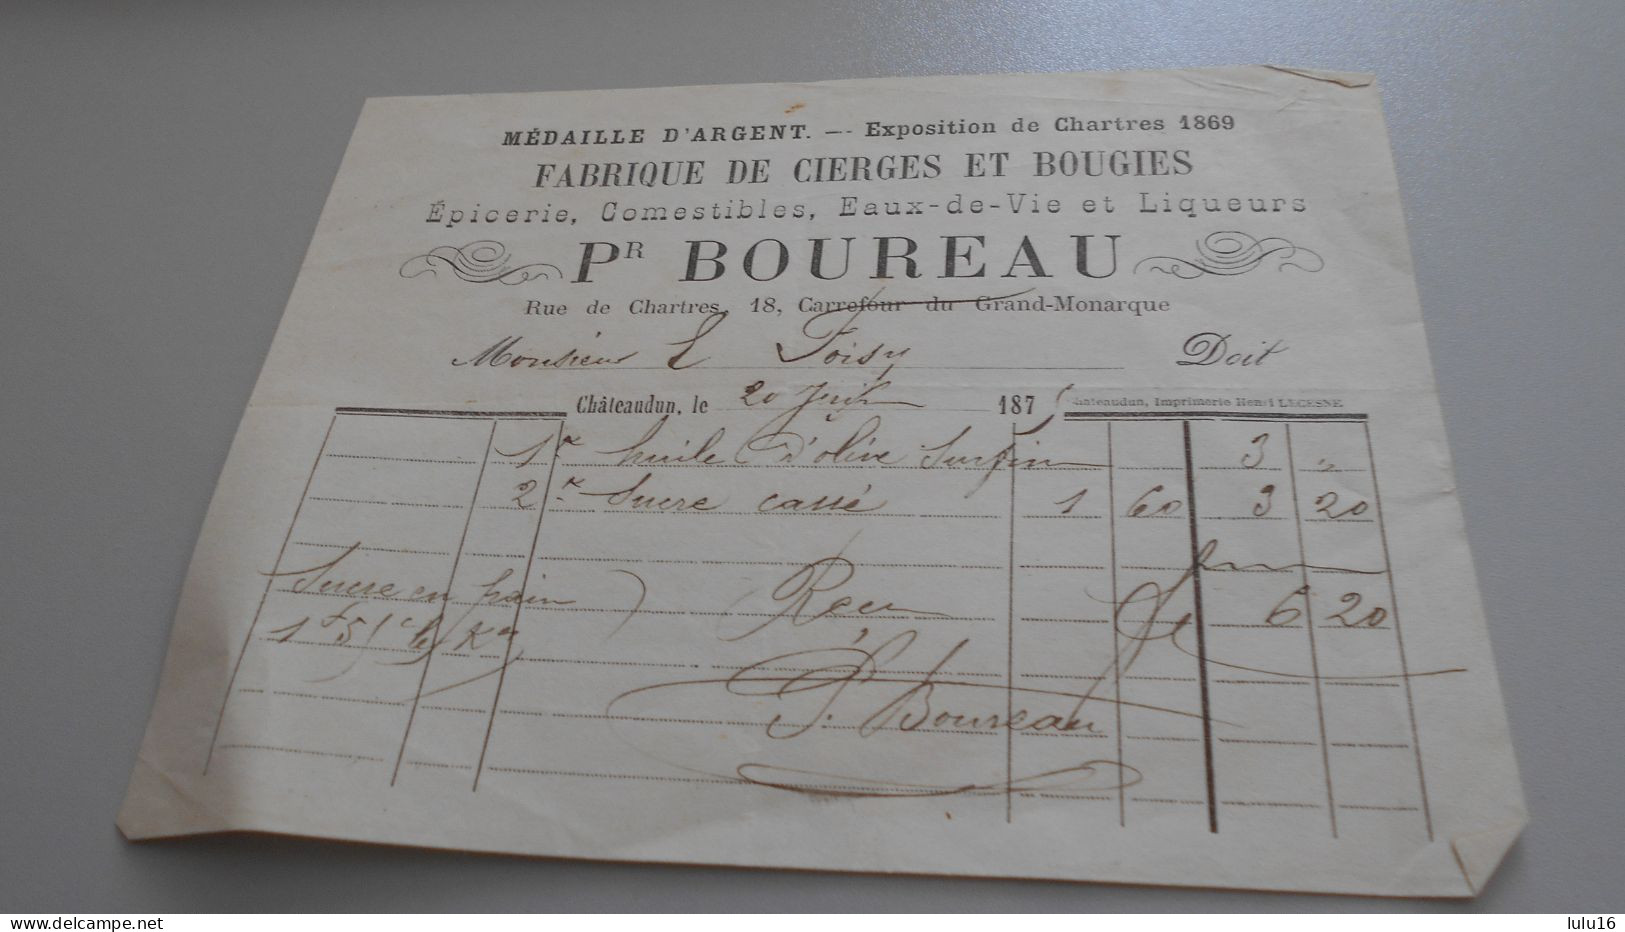 MÉDAILLE D'ARGENT. — Exposition de Chartres 1869
FABRIQUE DE CIERGES ET BOUGIES
Épicerie, Comestibles, Eaux-de-Vie et Liqueurs
PR BOUREAU
Rue de Chartres, 18, Carrefour du Grand-Monarque
Monsieur L Foisy Doit
Châteaudun, le 20 187 Châteaudun, Imprimerie Henri LECESNE
1 huile d'olive Surfin 3 "
2 Sucre cassé 1 60 3 20
Sucre en pain Reçu 6 20
P. Boureau
lulu16